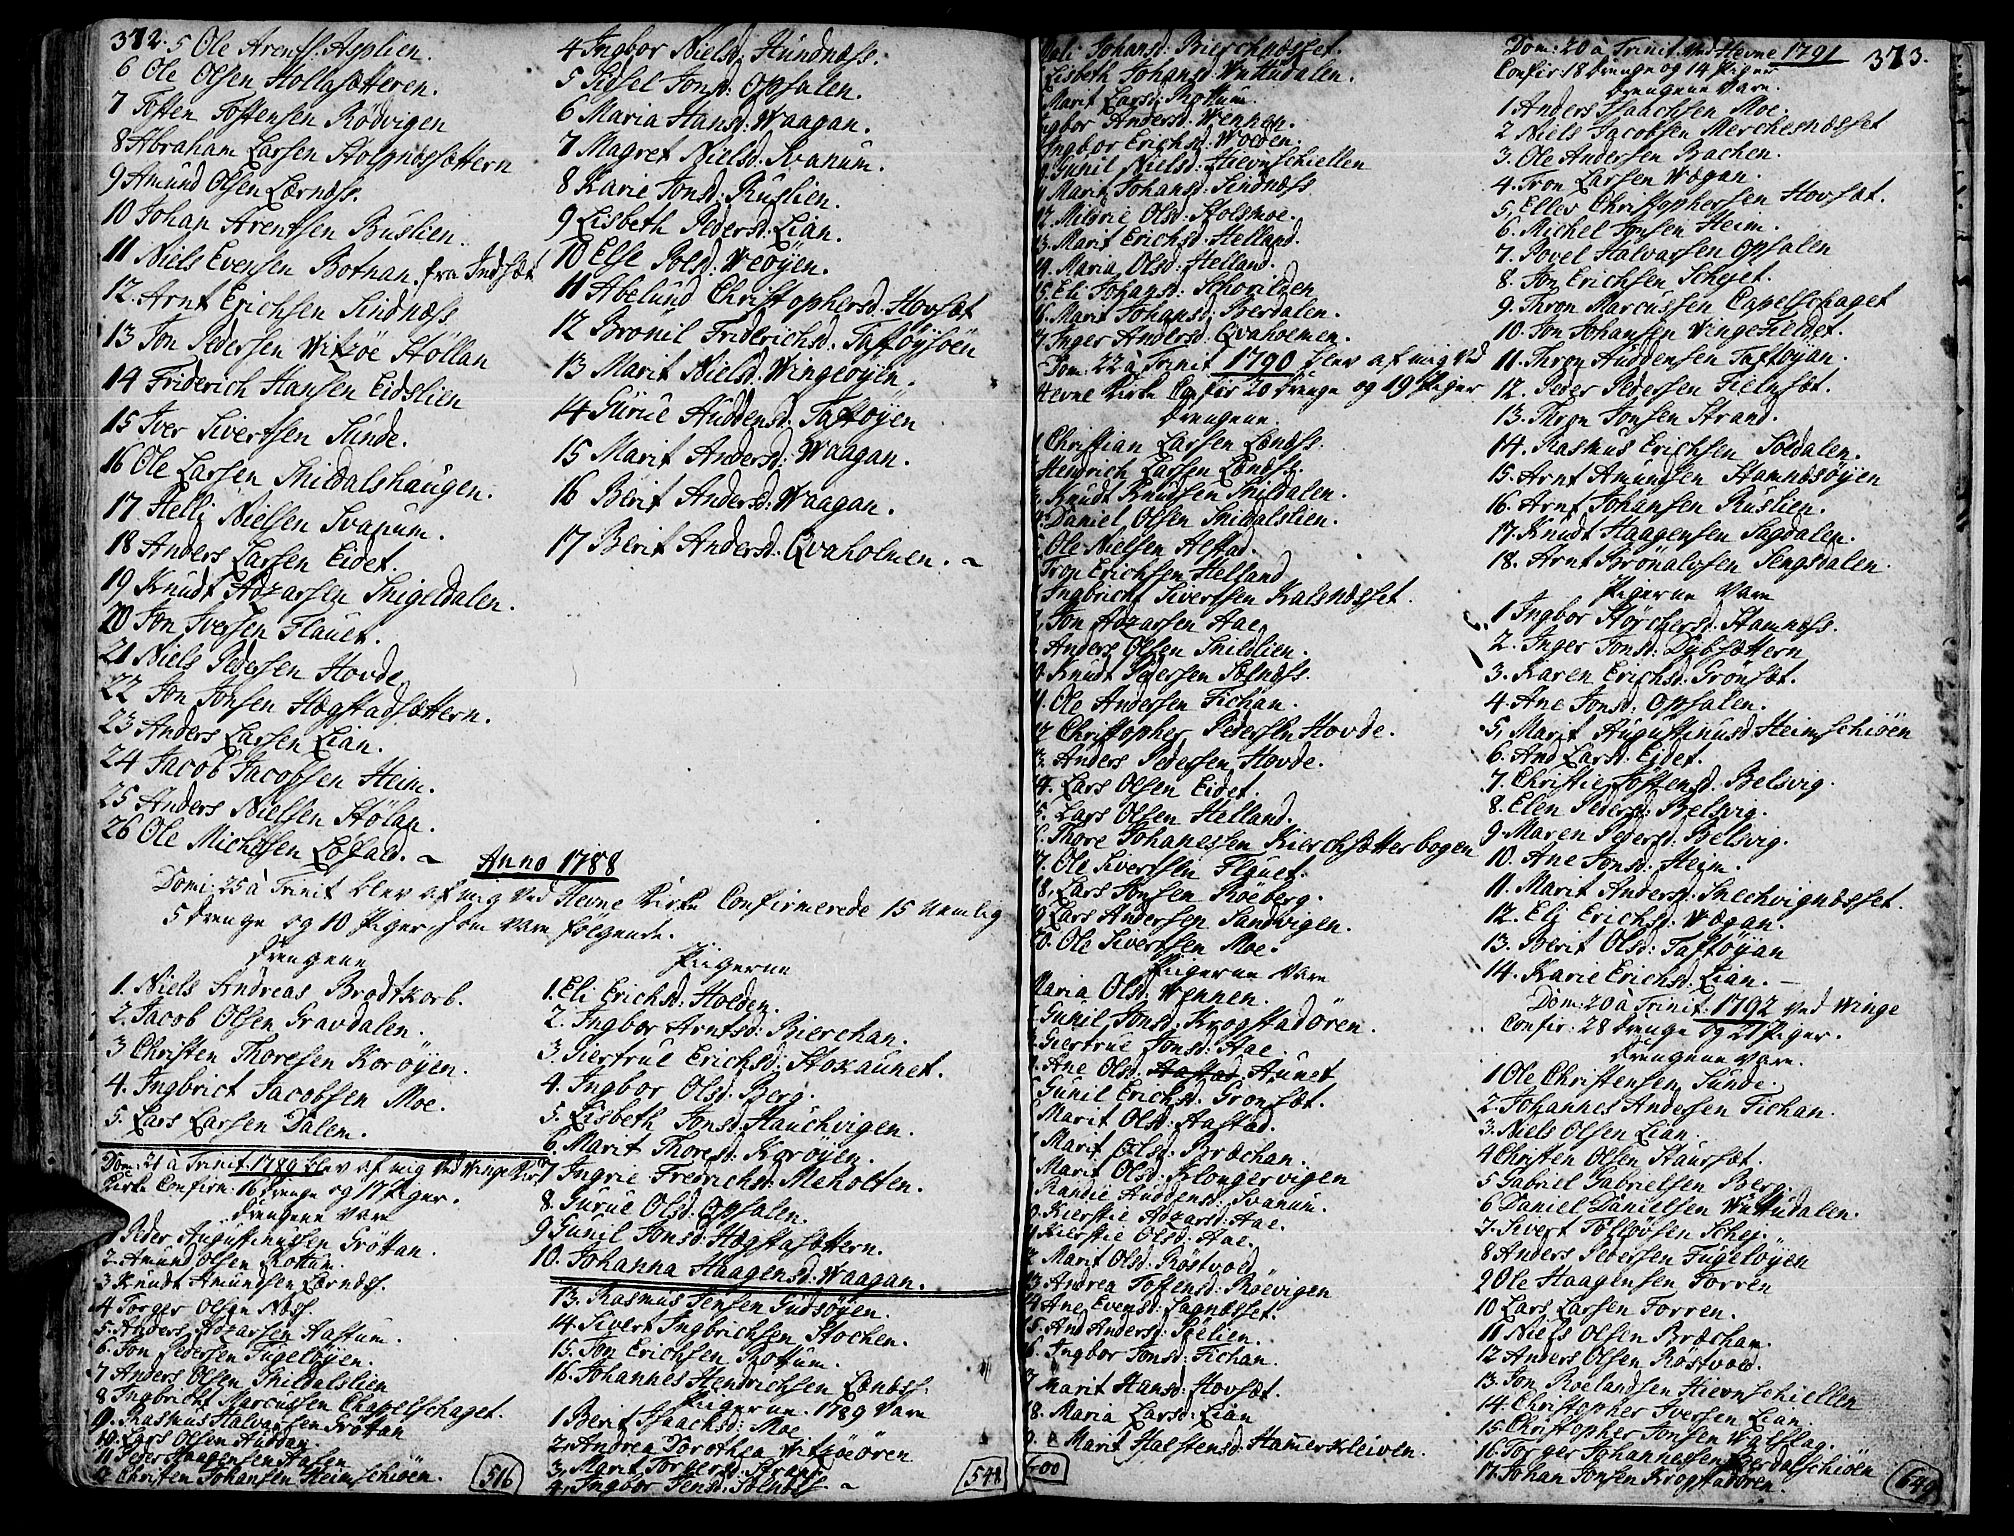 372.
5 Ole Arentss. Asplien.
6 Ole Olsen Hollasætteren.
7 Tosten Tostensen Rödvigen
8 Abraham Larsen Stolpnæsættern
9 Amund Olsen Lærnæss.
10 Johan Arentsen Ruslien.
11 Niels Evensen Botnan. fra Indsæt
12. Arnt Erichsen Sindnæss
13 Jon Pedersen Witzöe Stöllan
14 Friderich Hansen Eidslien
15 Iver Sivertsen Sunde.
16 Ole Larsen Snildalshaugen.
17 Helli Nielsen Svanum.
18 Anders Larsen Eidet.
19 Knudt Adzarsen Snigeldalen.
20 Jon Iversen Flauet.
21 Niels Pedersen Hovde
22 Jon Jonsen Hægstadsættern.
23 Anders Larsen Lian.
24 Jacob Jacobsen Heim.
25 Anders Nielsen Stölan.
26 Ole Michelsen Löfald.
4 Ingbor Nielsd. Sundnæss.
5 Sidsel Jonsd: Opsalen.
6 Maria Hansd: Waagan.
7 Magret Nielsd: Svanum.
8 Karie Jonsd: Ruslien.
9 Lisbeth Pedersd: Lian.
10 Else Polsd: Weöyen.
11 Abelund Christophersd. Hovsæt
12 Bronil Friderichsd: Taftöysöen
13 Marit Nielsd: Wingeöyen.
14 Gurue Auddensd: Taftöyen
15 Marit Andersd: Waagan.
16 Berit Andersd: Waagan.
17 Berit Andersd: Qvaholmen.
Anno 1788
Domi: 25 à Trinit blev af mig ved Hevne Kirke Confirmerede 15 Nemlig
5 Drenge og 10 Piger som vare fölgende.
Drengene
1. Niels Andreas Brodtkorb.
2. Jacob Olsen Gravdalen.
3 Christen Thoresen Koröyen.
4. Ingbrict Jacobsen Moe.
5. Lars Larsen Dalem.
Pigerne
1. Eli Erichsd: Holden.
2. Ingbor Arntsd: Bierchan.
3. Giertrue Erichsd: Stoxaunet.
4. Ingbor Olsd: Berg.
5. Lisbeth Jonsd: Hauchvigen.
6. Marit Thoresd: Koröyen.
7 Ingrie Fredrichsd: Meholten.
8. Gurue Olsd: Opsalen.
9 Gunil Jonsd: Hægstasættern.
10. Johanna Haagensd: Waagan.
Dom: 21 à Trinit: 1789 blev af mig ved Winge
Kirke Confirm: 16 Drenge og 17 Piger.
Drengene vare
1 Peder Augustinussen Gröttan.
2. Amund Olsen Rottum.
3 Knudt Amundsen Lærnæss.
4 Torger Olsen Næss.
5. Anders Adzarsen Aastum.
6. Jon Pedersen Fugelöyen.
7 Anders Olsen Snildalslien
8 Ingbricht Marcussen Chapelschaget.
9. Rasmus Halvorsen Gröttan
10. Lars Olsen Auddan.
11 Peder Haagensen Stalen
12 Christen Johansen Heimschiöen.
13. Rasmus Jensen Gudsöyen.
14. Sivert Ingbrichsen Stochen.
15. Jon Erichsen Rottum.
16. Johannes Hendrichsen Lænæss.
Pigerne. 1789 Vare
1 Berit Isaachsd: Moe
2. Andrea Dorothea Witzöeören
3. Marit Torgersd: Strand.
4. Ingbor Jensd: Solnæss.
516
548
Lisbeth Johansd: Wuttudalen.
Marit Larsd: Rottum.
Ingbor Andersd: Wennen.
Ingbor Erichsd: Woden.
Gunil Nielsd: Hievnschiellen
Marit Johansd: Sindnæss
12. Mildrie Olsd: Stolsmoe.
13. Marit Erichsd: Helland.
14. Maria Olsd: Helland.
15. Eli Johansd: Schorilden
16. Marit Johansd: Berdalen.
17. Inger Andersd: Qvaholmen.
Dom: 22 à Trinit 1790 blev af mig ved
Hevne Kirke Confir 20 Drenge og 19 Piger
Drengene
Christian Larsen Lænæss.
Hendrich Larsen Lænæss.
Knudt Knudsen Snildalen.
Daniel Olsen Snildalslien.
Ole Nielsen Aestad.
Tron Erichsen Helland
Ingbricht Sivertsen Kalsnæsset.
Jon Adzarsen Hae
Anders Olsen Snildlien.
Knudt Pedersen Selnæss.
11. Ole Andersen Fichan.
12 Christopher Pedersen Hovde.
13. Anders Pedersen Hovde.
14. Lars Olsen Eidet.
15. Lars Olsen Helland.
16. Thore Johanessen Kierchsætterbogen
17. Ole Sivertsen Flauet.
18. Lars Jonsen Röeberg.
19 Lars Andersen Sandvigen.
20. Ole Sivertsen Moe.
Pigerne Vare
Maria Olsd: Wennen.
Gunil Jonsd: Krogstadören.
Giertrue Jonsd: Hae
Ane Olsd: Aastad Aunet
Gunil Erichsd. Gronsæt.
Marit Olsd: Aastad.
Marit Olsd: Bræchan.
Marit Olsd: Klongervigen
Randie Auddensd: Svanum.
Kierstie Adzarsd: Hae.
Kierstie Olsd: Hae.
Marit Olsd: Röstvold
13 Andrea Tostensd: Röevigen
14 Ane Evensd: Sagnæsset.
15. And Andersd: Stölien.
16. Ingbor Jonsd: Fichan.
17 Marit Hansd: Hovsæt.
18. Maria Larsd: Lian
Marit Halstensd: Hamerkleiven.
Dom: 20 à Trinit. ved Hevne 1791
373.
Confir 18 Drenge og 14 Piger
Drengene vare.
1. Anders Isaachsen Moe.
2 Niels Jacobsen Merchesnæsset
3. Ole Andersen Bachen.
4. Tron Larsen Wægan.
5, Ellev Christophersen Hovsæt.
6. Michel Jonsen Heim.
7. Povel Halvorsen Opsalen
8. Jon Erichsen Schejet.
9. Thron Marcussen Capelschaget
10. Jon Johansen Wingesieldet.
11. Thron Auddensen Taftöyan.
12. Peder Pedersen Fielnsæt.
13. Thron Jonsen Strand.
14. Rasmus Erichsen Söedalen.
15. Arnt Amundsen Stamnæsöyen
16. Arnt Johansen Ruslien.
17. Knudt Haagensen Sagdalen.
18. Arnt Brönalssen Sengsdalen.
Pigerne Vare
1 Ingbor Störchersd. Stamnæss.
2. Inger Jonsd: Dybsættern
3. Karen Erichsd: Grönsæt.
4. Ane Jonsd: Opsalen.
5, Marit Augustinusd Heimschiöen
6. And Larsd: Eidet.
7. Christie Tostensd: Belsvig.
8. Elen Pedersd: Belsvig.
9. Maren Pedersd: Belsvig.
10. Ane Jonsd: Heim.
11. Marit Andersd: Snechvignæsset.
12. Eli Erichsd: Wægan.
13. Berit Olsd: Taftöyan
14. Karie Erichsd: Lian.
Dom: 20 à Trinit. 1792 ved Winge
Confir: 28 Drenge og 21 Piger.
Drengene vare.
1 Ole Christensen Sunde.
2. Johannes Andersen Fichan.
3. Niels Olsen Lian
4 Christen Olsen Staursæt.
5 Gabriel Gabrielsen Berg.
6 Daniel Danielsen Wuttudalen.
7. Sivert Tollöfsen Schej.
8 Anders Pedersen Fugelöyen
9 Ole Haagensen Torren
10 Lars Larsen Torren.
11 Niels Olsen Bræchan.
12 Anders Olsen Röstvold.
13. Jon Roelandsen Hievnschiellen
14. Christopher Iversen Lian.
15. Christopher Jonsen Walslag.
16. Torger Johannessen Berdalschiöen
17. Johan Jonsen Krogstadören.
649